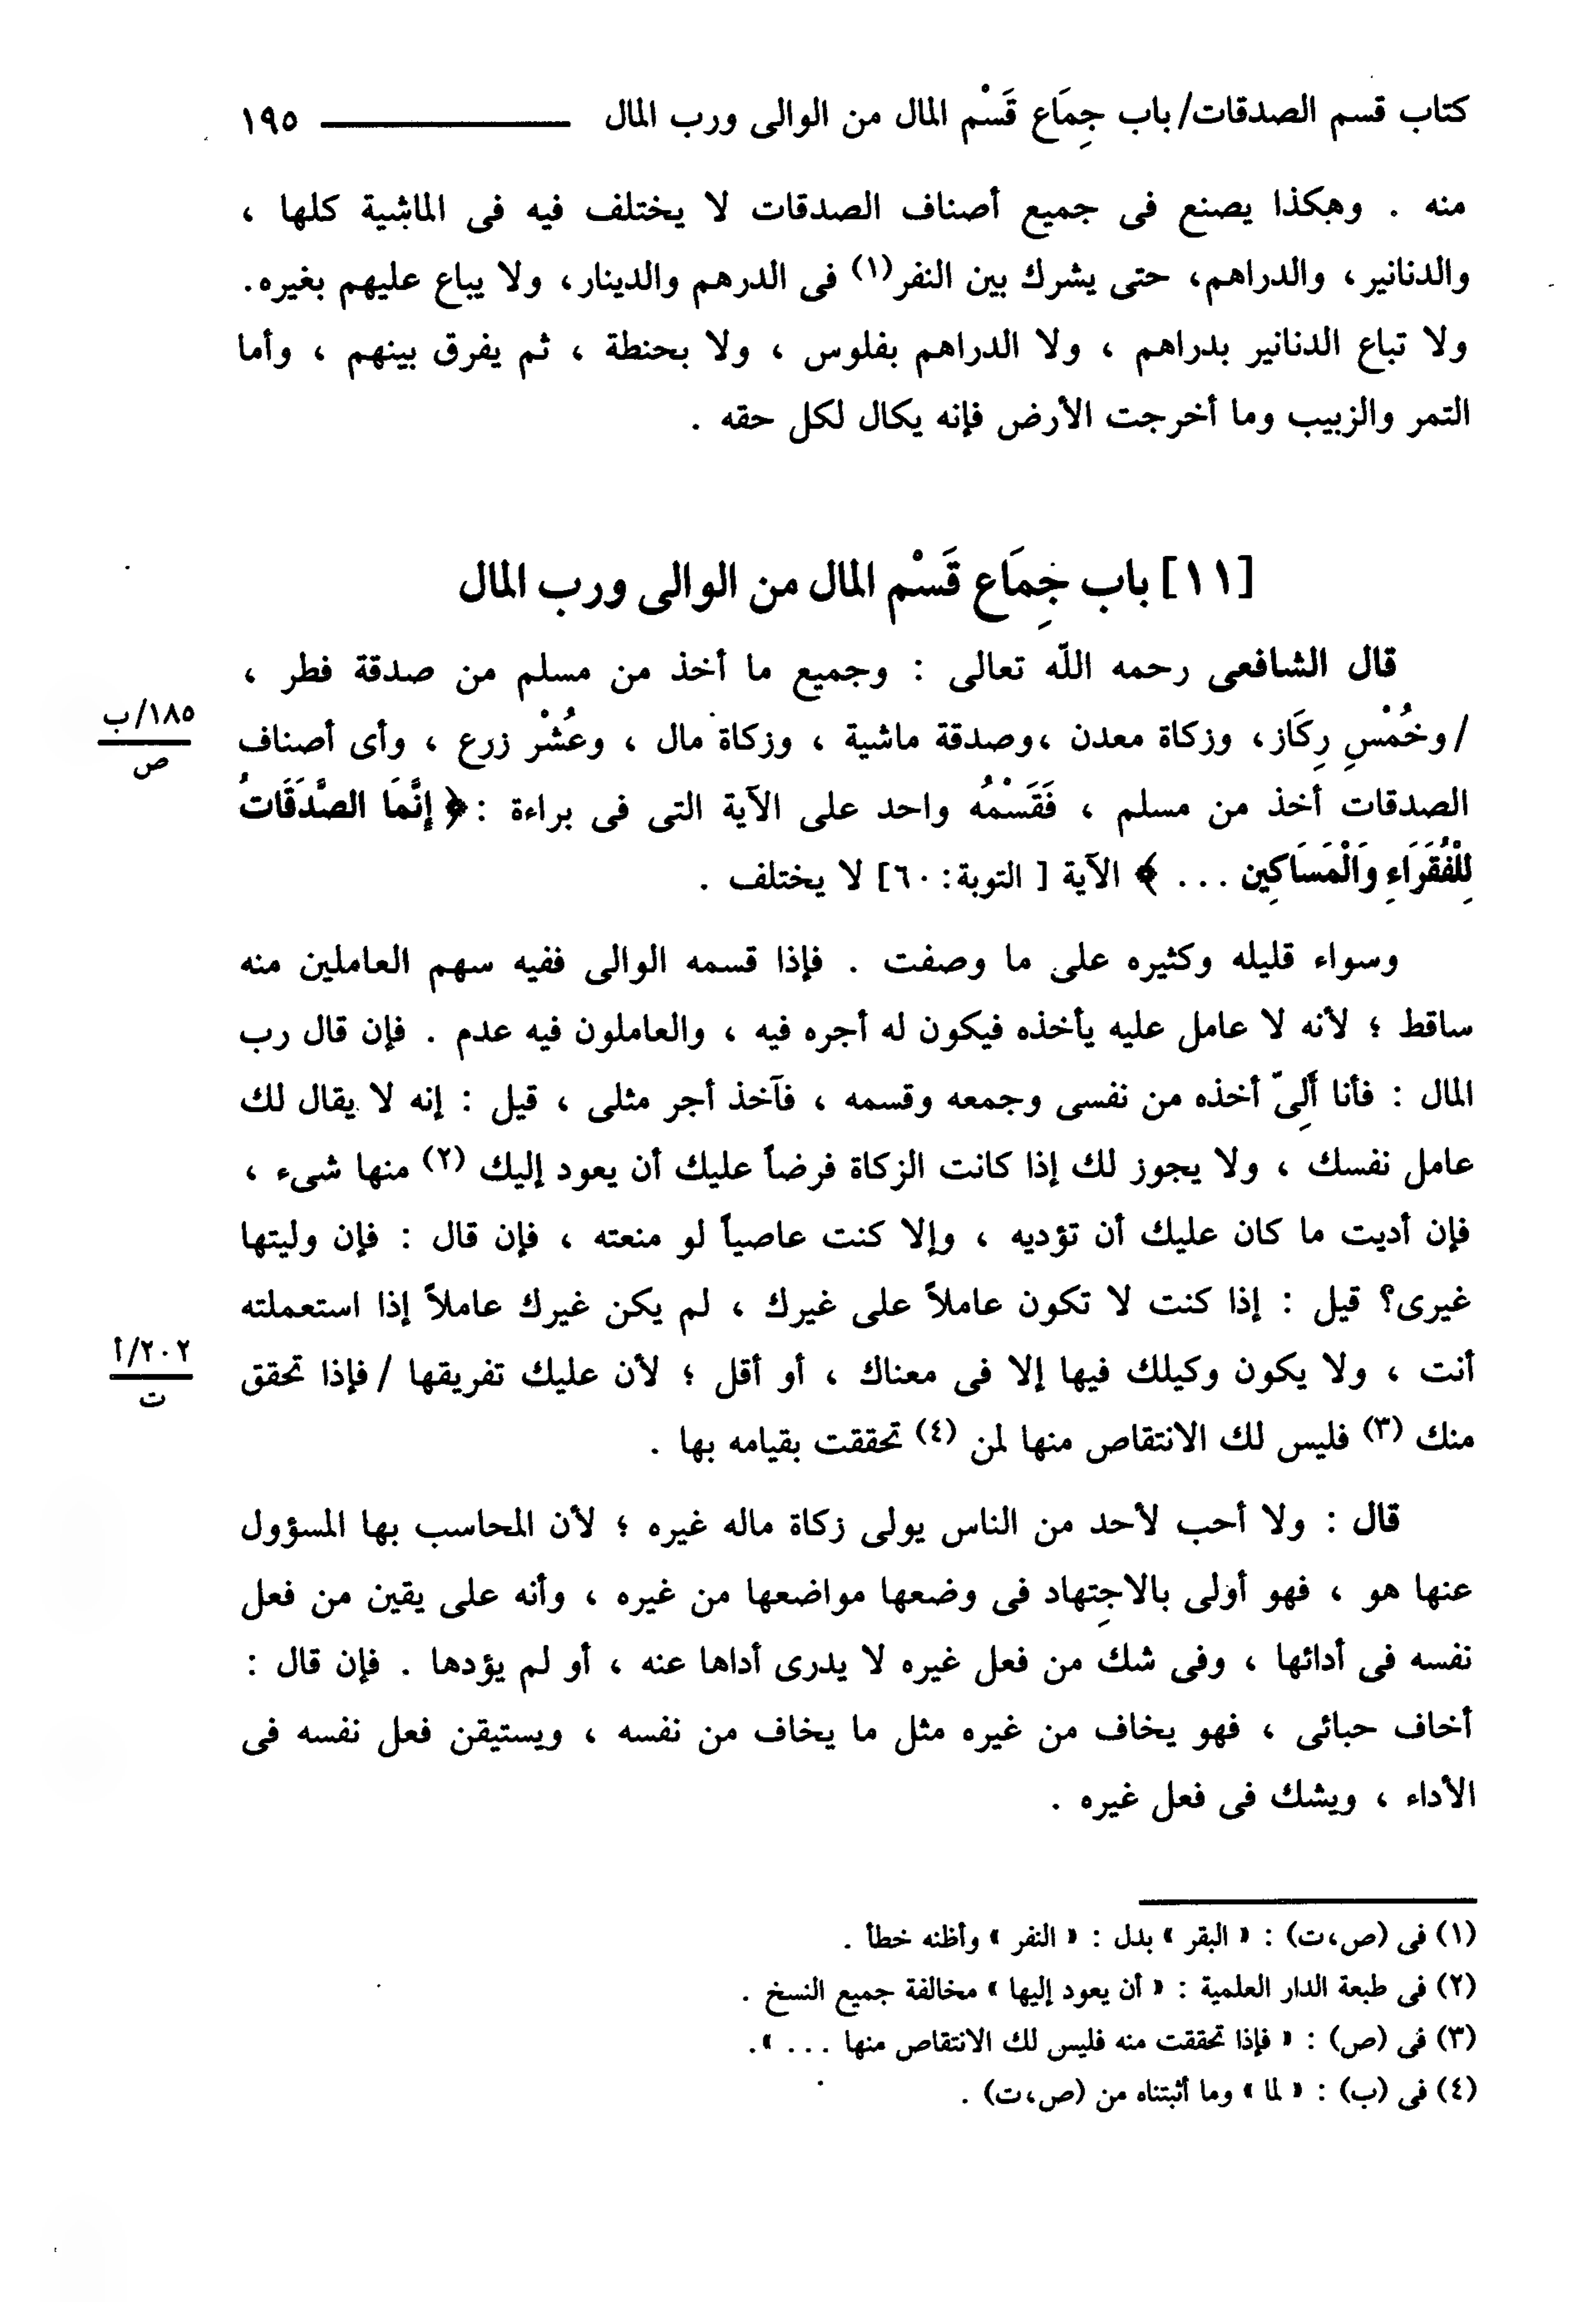 كتاب قسم الصدقات/ باب جِمَاع قَسْم المال من الوالى ورب المال ١٩٥
منه . وهكذا يصنع فى جميع أصناف الصدقات لا يختلف فيه فى الماشية كلها ،
والدنانير، والدراهم، حتى يشرك بين النفر(١) فى الدرهم والدينار، ولا يباع عليهم بغيره.
ولا تباع الدنانير بدراهم ، ولا الدراهم بفلوس ، ولا بحنطة ، ثم يفرق بينهم ، وأما
التمر والزبيب وما أخرجت الأرض فإنه يكال لكل حقه .
[١١] باب جِمَاع قَسْم المال من الوالى ورب المال
قال الشافعى رحمه اللّه تعالى : وجميع ما أخذ من مسلم من صدقة فطر ،
/ وخُمْسِ رِكَاز، وزكاة معدن ،وصدقة ماشية ، وزكاة مال ، وعُشْر زرع ، وأى أصناف
١٨٥/ب
ص
الصدقات أخذ من مسلم ، فَقَسْمُه واحد على الآية التى فى براءة :﴿ إِنَّمَا الصَّدَقَاتُ
لِلْفُقَرَاءِ وَالْمَسَاكِين ... ﴾ الآية [ التوبة: ٦٠] لا يختلف .
وسواء قليله وكثيره على ما وصفت . فإذا قسمه الوالى ففيه سهم العاملين منه
ساقط ؛ لأنه لا عامل عليه يأخذه فيكون له أجره فيه ، والعاملون فيه عدم . فإن قال رب
المال : فأنا أَلِىّ أخذه من نفسى وجمعه وقسمه ، فآخذ أجر مثلى ، قيل : إنه لا يقال لك
عامل نفسك ، ولا يجوز لك إذا كانت الزكاة فرضاً عليك أن يعود إليك (٢) منها شىء ،
فإن أديت ما كان عليك أن تؤديه ، وإلا كنت عاصياً لو منعته ، فإن قال : فإن وليتها
غيرى؟ قيل : إذا كنت لا تكون عاملاً على غيرك ، لم يكن غيرك عاملاً إذا استعملته
أنت ، ولا يكون وكيلك فيها إلا فى معناك ، أو أقل ؛ لأن عليك تفريقها / فإذا تحقق
٢٠٢/أ
ت
منك (٣) فليس لك الانتقاص منها لمن (٤) تحققت بقيامه بها .
قال : ولا أحب لأحد من الناس يولى زكاة ماله غيره ؛ لأن المحاسب بها المسؤول
عنها هو ، فهو أولى بالاجِتهاد فى وضعها مواضعها من غيره ، وأنه على يقين من فعل
نفسه فى أدائها ، وفى شك من فعل غيره لا يدرى أداها عنه ، أو لم يؤدها . فإن قال :
أخاف حبائى ، فهو يخاف من غيره مثل ما يخاف من نفسه ، ويستيقن فعل نفسه فى
الأداء ، ويشك فى فعل غيره .
(١) فى (ص،ت) : « البقر » بدل : « النفر » وأظنه خطأ .
(٢) فى طبعة الدار العلمية : « أن يعود إليها » مخالفة جميع النسخ .
(٣) فى (ص) : « فإذا تحققت منه فليس لك الانتقاص منها ... ».
(٤) فى (ب) : « لما » وما أثبتناه من (ص،ت) .